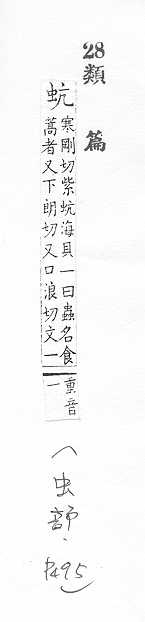 28類篇
蚢
寒剛切紫蚢海貝一曰蟲名食
蒿者又下朗切又口浪切文一
重音
一
〈虫部.
P495